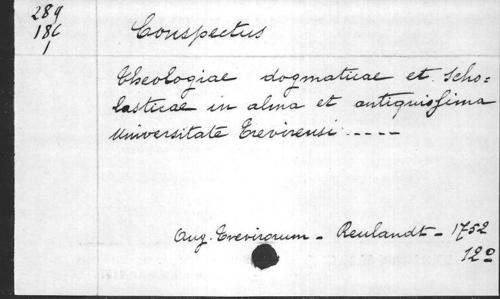 289
186
1
Conspectus
Theologiae dogmaticae et scho=
lasticae in alma et antiquissima
Universitate Trevirensi .----
Aug. Trevirorum - Reulandt - 1752
12º